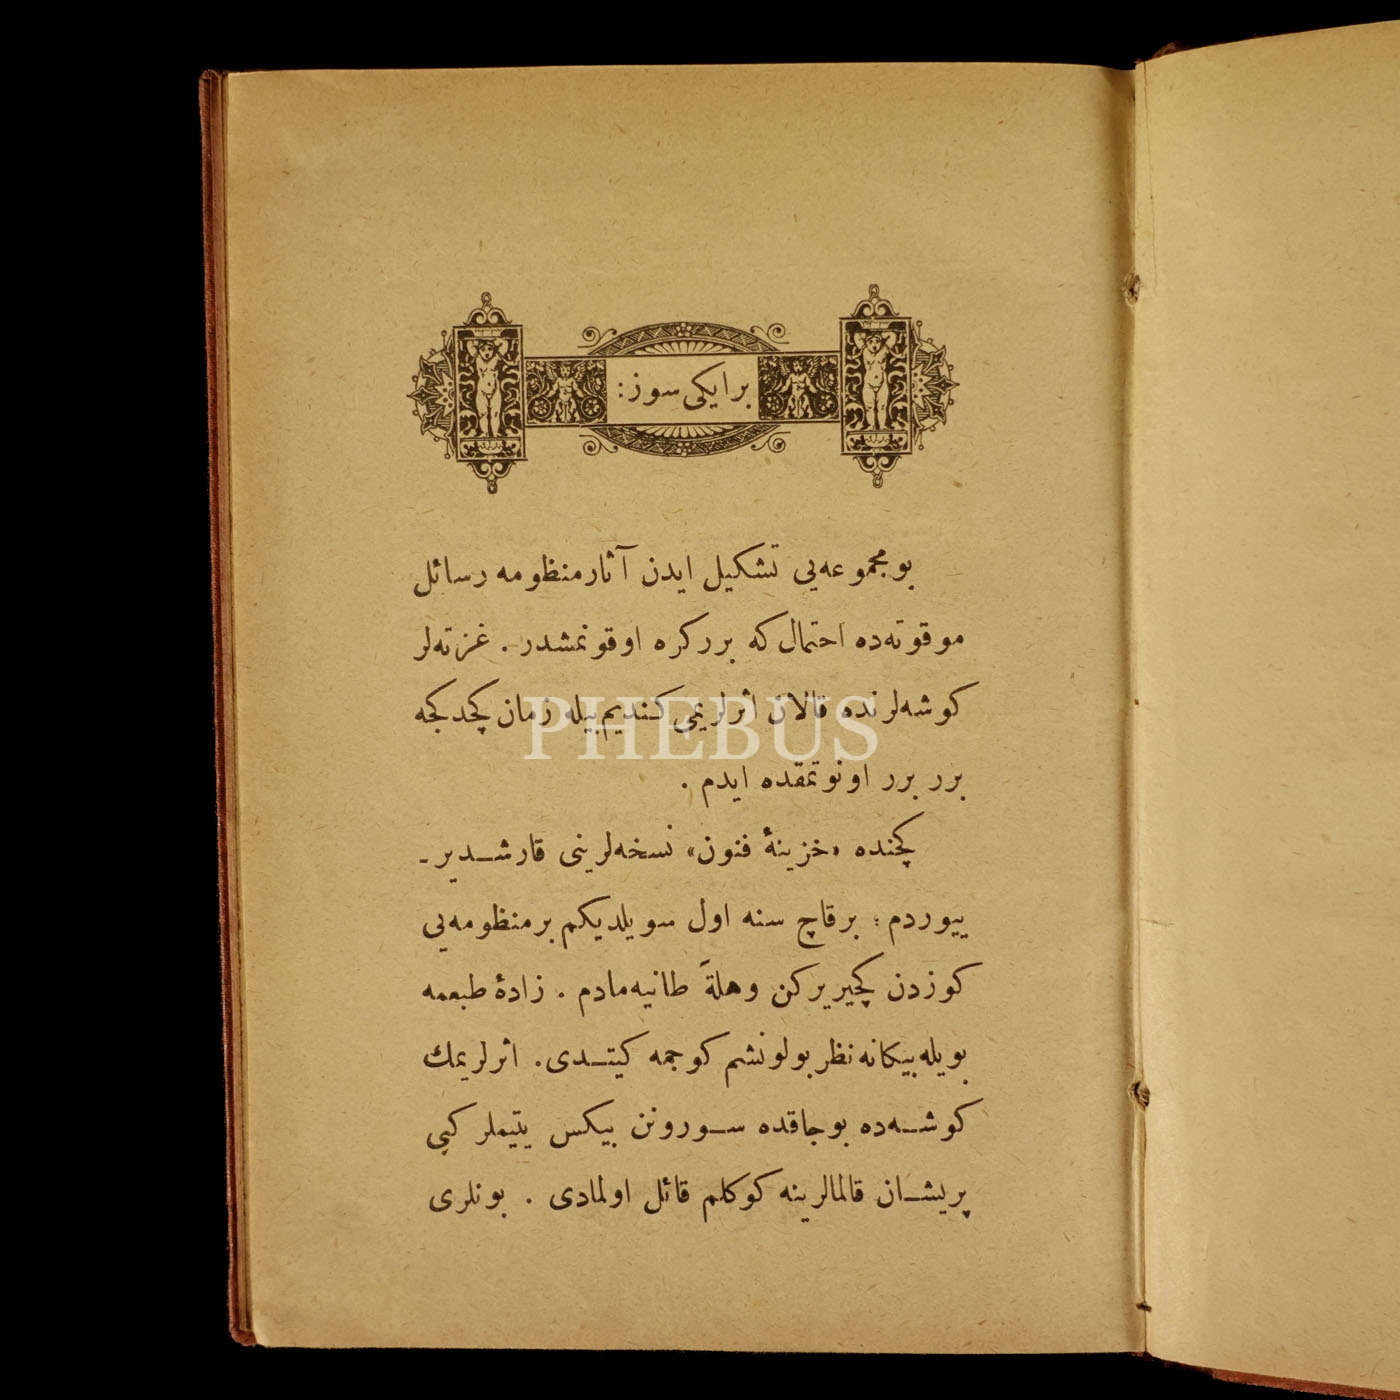 بر ایکی سوز :
بو مجموعه‌یی تشکیل ایدن آثار منظومه رسائل
موقوته‌ده احتمال که برر کره اوقونمشدر . غزته‌لر
کوشه‌لرنده قالان اثرلریمی کندیم بیله زمان کچدکجه
برر برر اونوتمقده ایدم .
کچنده «خزینۀ فنون» نسخه‌لرینی قارشـدیر -
ییوردم ؛ بر قاچ سنه اول سویلدیکم بر منظومه‌یی
کوزدن کچیریرکن وهلةً طانیه‌مادم . زادۀ طبعمه
بویله بیکانه نظر بولونشم کوجمه کیتـدی . اثرلریمك
کوشـه‌ده بوجاقده سـورونن بیکس یتیملر کبی
پریشـان قالمالرینه کوکلم قائل اولمادی . بونلری
PHEBUS